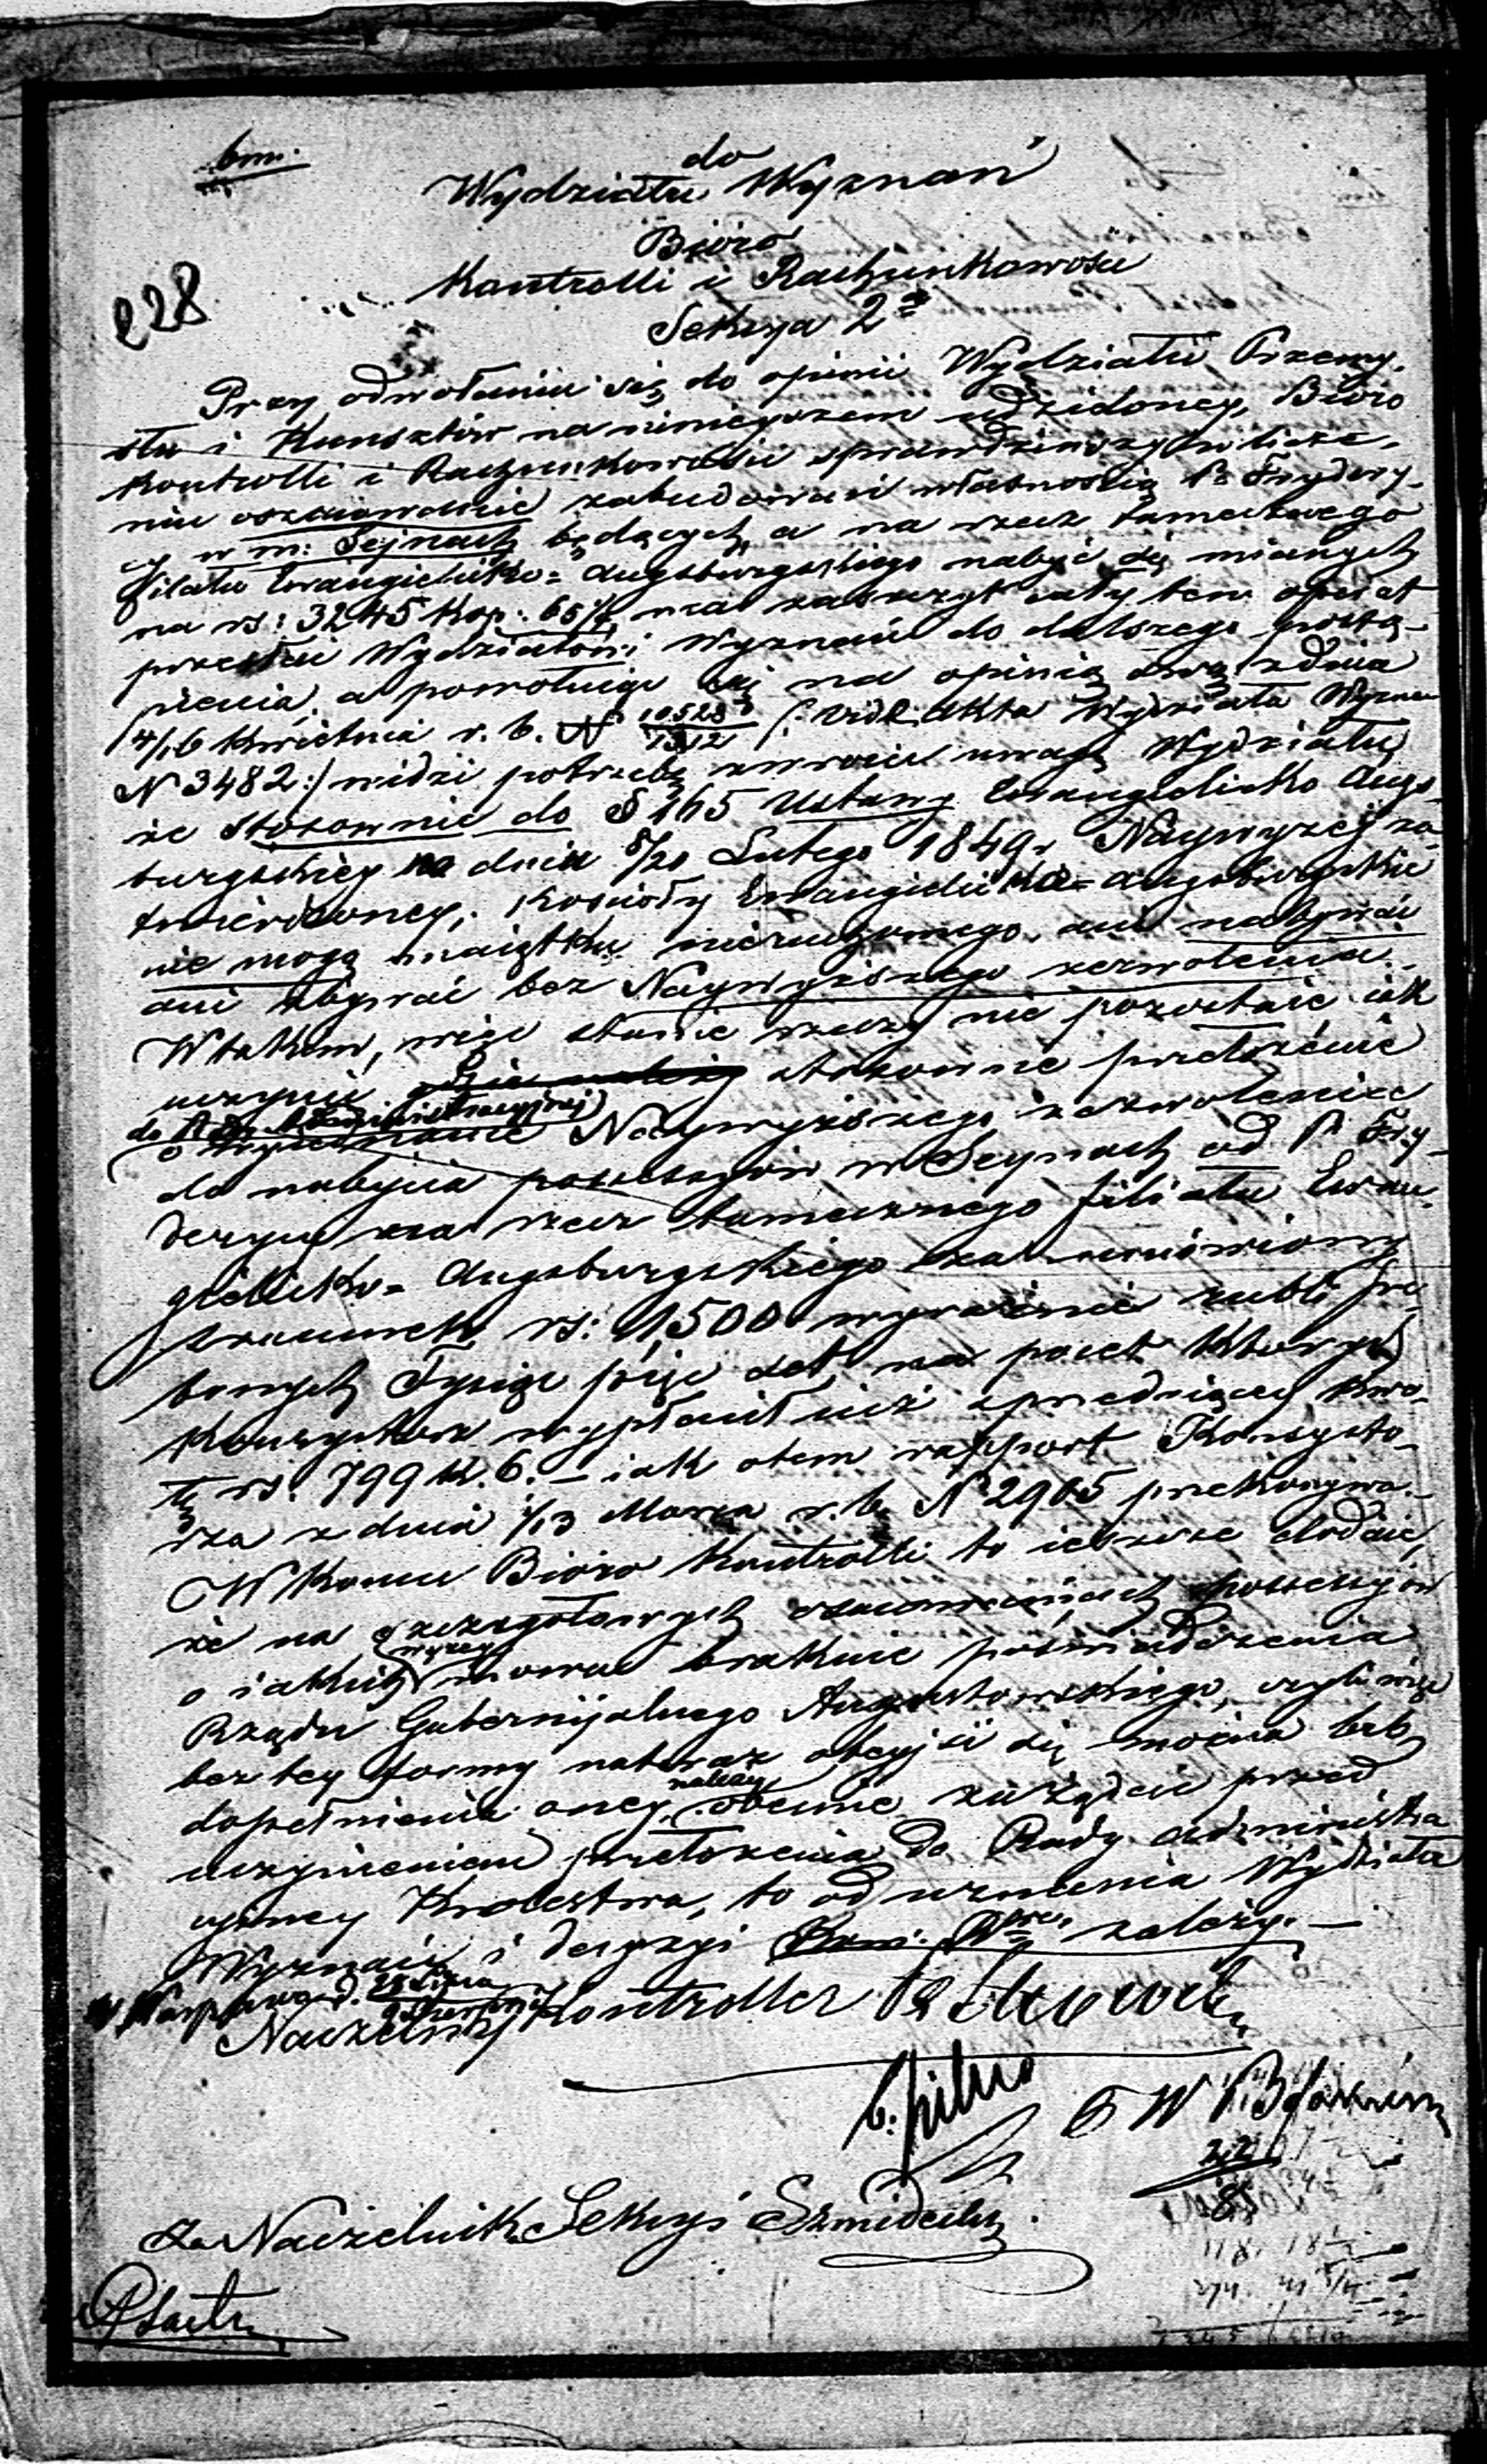 do
Wydziału Wyznań
Bióro
Kontrolli i Rachunkowości
Sekcya 2ª
228
Przy odwołaniu się do opinii Wydziału Przemy-
słu i Kunsztów na niniejszem udzieloney, Bióro
Kontrolli i Rachunkowości sprawdziwszy w licze-
niu oszacowanie zabudowań własnością P. Frydery-
cy w m: Sejnach będących, a na rzecz tamecznego
filiału Ewangielicko-Augsburgskiego nabyć się mianych
na rs: 3245 kop: 65½, ma zaszczyt cały ten operat
przesłać Wydziałowi Wyznań do dalszego postą-
pienia, a powołując się na opinią swą z dnia
4/16 Kwietnia r. b. N 10528/1312 /: vide akta Wydziału Wyznań
N 3482:/ widzi potrzebę zwrócić uwagę Wydziału,
że stosownie do § 165 Ustawy Ewangelicko Augs-
burgskiey na dniu 8/20 Lutego 1849 r Naywyżej za-
twierdzoney, Kościoły Ewangielicko-Augsburgskie
nie mogą maiątku nieruchomego, ani nabywać
ani zbywać bez Naywyższego zezwolenia.
W takim, więc stanie rzeczy nie pozostaie iak
uczynić stosowne przełożenie
do Rady Administracyjnej
o wyjednanie Naywyższego zezwolenia
do nabycia possessyów w Seynach od P. Fry-
derycy na rzecz tamecznego filiału Ewan-
gielicko-Augsburgskiego za umówiony
szacunek rs: 1500 wyraźnie rubli sre-
brnych Tysiąc pięć set, na poczet których
Konsystorz wypłacił już sprzedaiącey kwo-
tę rs. 799 k. 6. – iak o tem rapport Konsysto-
rza z dnia 1/13 Marca r. b. N 2905 przekonywa.–
W końcu Bióro Kontrolli to ieszcze dodaie,
że na szczegółowych oszacowaniach possessyów
o iakich wyżey mowa braknie poświadczenia
Rządu Gubernijalnego Augustowskiego, czyli więc
bez tey formy na teraz obeyść się można lub
dopełnienia oney należy obecnie zażądać przed
uczynieniem przełożenia do Rady Administra-
cyjney Królestwa, to od uznania Wydziału
Wyznań i decyzyi zależy.–
w Warszawie d. 28
Naczelny Kontroller
Za Naczelnika Sekcyi